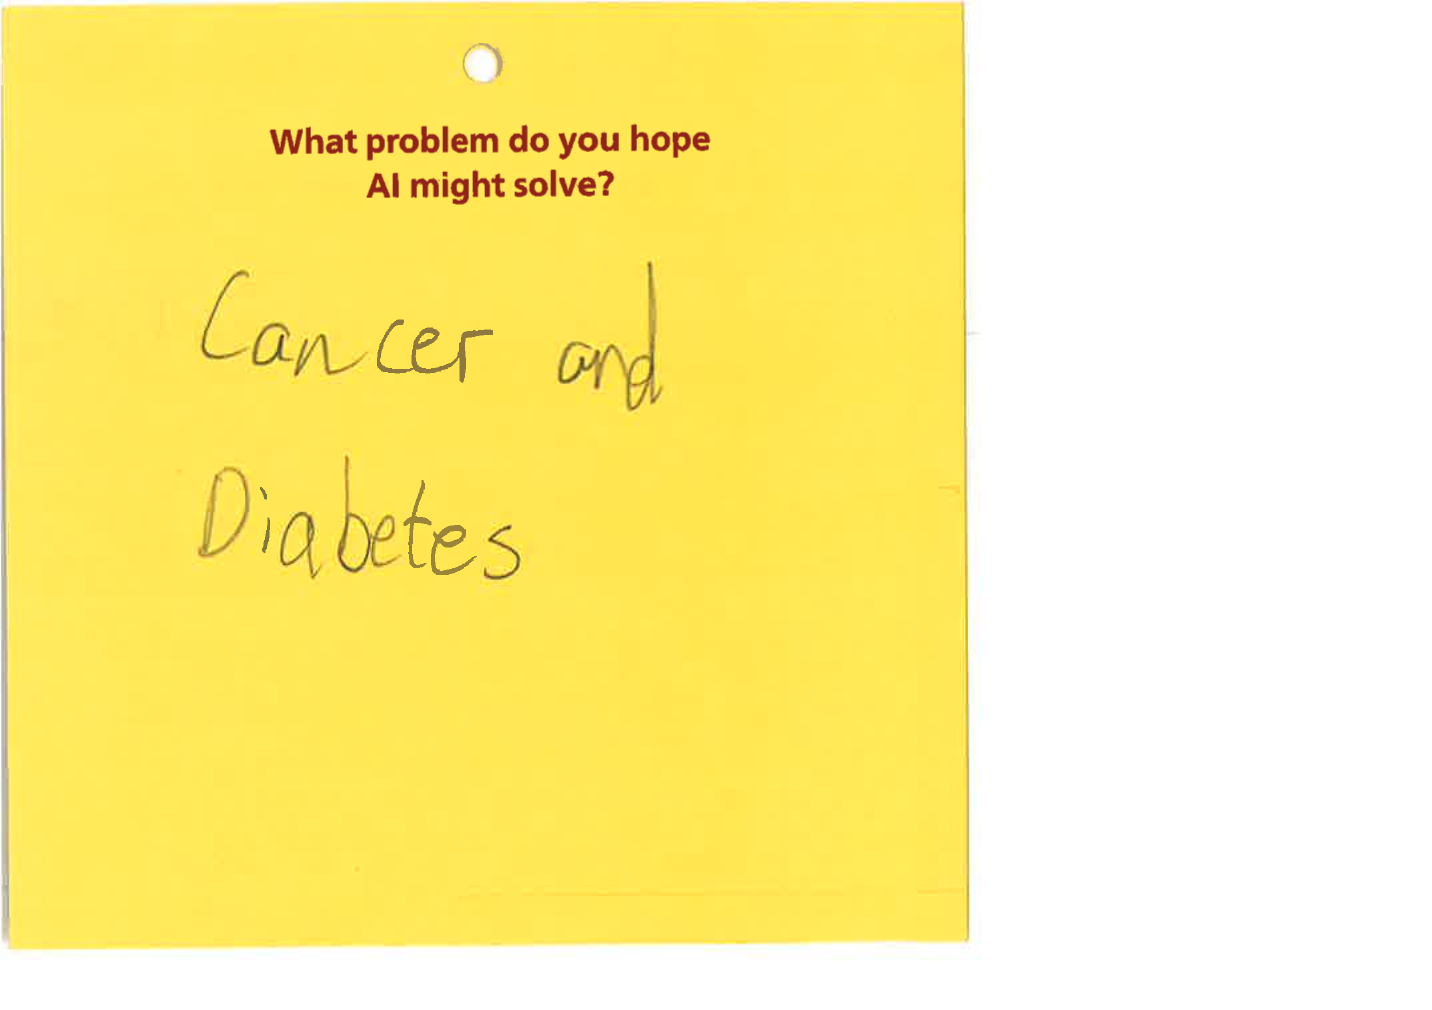 What problem do you hope
AI might solve?
Cancer and
Diabetes